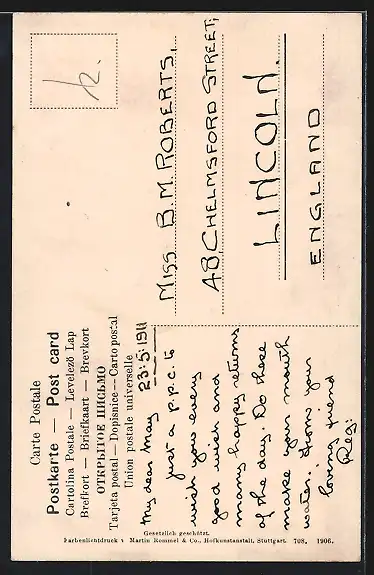 Carte Postale
Postkarte — Post card
Cartolina Postale — Levelező Lap
Brefkort — Briefkaart — Brevkort
ОТКРЫТОЕ ПИСЬМО
Tarjeta postal — Dopisnice — Carto postal
Union postale universelle
My dear May 23·5·1911
Just a p.p.c. to
wish you every
good wish and
many happy returns
of the day. Do these
make your mouth
water. From your
loving friend
Reg:
Miss B.M. ROBERTS,
CHELMSFORD STREET,
LINCOLN.
ENGLAND
Gesetzlich geschützt.
Farbenlichtdruck v Martin Rommel & Co., Hofkunstanstalt, Stuttgart. 708, 1906.